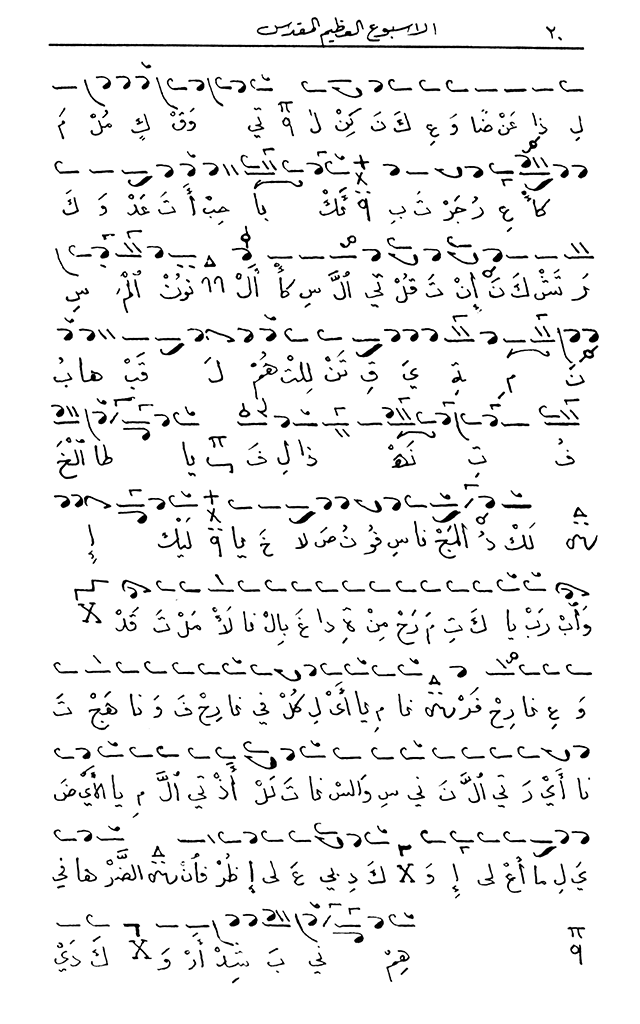 ٢٠ الاسبوع العظيم المقدس
لِ ذا عَنْ ضَا وَ عِ كَ نَ كِنْ لَ تي وَقْ كِ مُلْ مَ
كا عِ رُجَرْ تَ بِ ئكْ يا حِبْ أَ تَ عَدْ وَ كَ
رَ تَشْ كَ نَ إِنْ تَ قُلْ تي الَّ سِ كا أَلْ نونُ الْمَ سِ
نَ مِ ةِ يَ قِ تَنْ لِلتْ هُمْ لَ قَبْ هابُ
فُ تِ نَهْ ذا لِ خَ يا طا الْخَ
لَكْ دُ الْمَجْ ناسِ فو نُ صَ لا خَ يا لَيْكَ إِ
وَأُبْ رَبْ يا كَ تِ مَ رَحْ مِنْ ةِ داغَ بِالْ نا لأْ مَلْ تَ قَدْ X
وَ عِ نا رِحْ فَرْ نا مِ يا أَيْ لِ كُلْ ني نا رِحْ فَ وَ نا هَجْ تَ
نا أَيْ رَ تي الَّ نَ ني سِ وَالسْ نا تَ لَلْ أَذْ تي الَّ مِ يا الأَيْ ضَ
يَ لِ ما أَعْ لى إِ وَ X كَ دِ بي عَ لى إِظُرْ فَانْ الضَّرْ ها في
هِمْ ني بَ شِدْ أَرْ وَ X كَ دَيْ